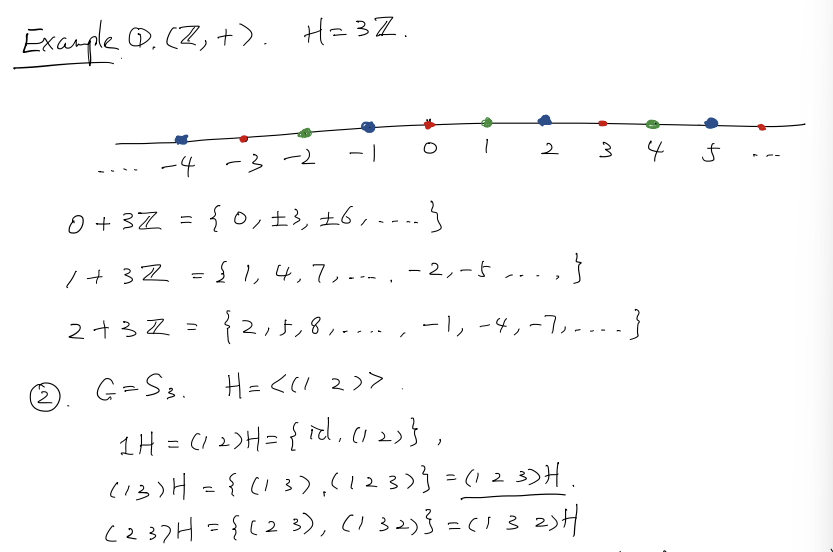 Example ①. (ℤ, +). H = 3ℤ.
.... -4 -3 -2 -1 0 1 2 3 4 5 ...
0 + 3ℤ = { 0, ±3, ±6, .... }
1 + 3ℤ = { 1, 4, 7, ...., -2, -5 ...., }
2 + 3ℤ = { 2, 5, 8, ...., -1, -4, -7, .... }
②. G = S₃. H = <(1 2)>.
1H = (1 2)H = { id, (1 2) },
(1 3)H = { (1 3), (1 2 3) } = (1 2 3)H.
(2 3)H = { (2 3), (1 3 2) } = (1 3 2)H